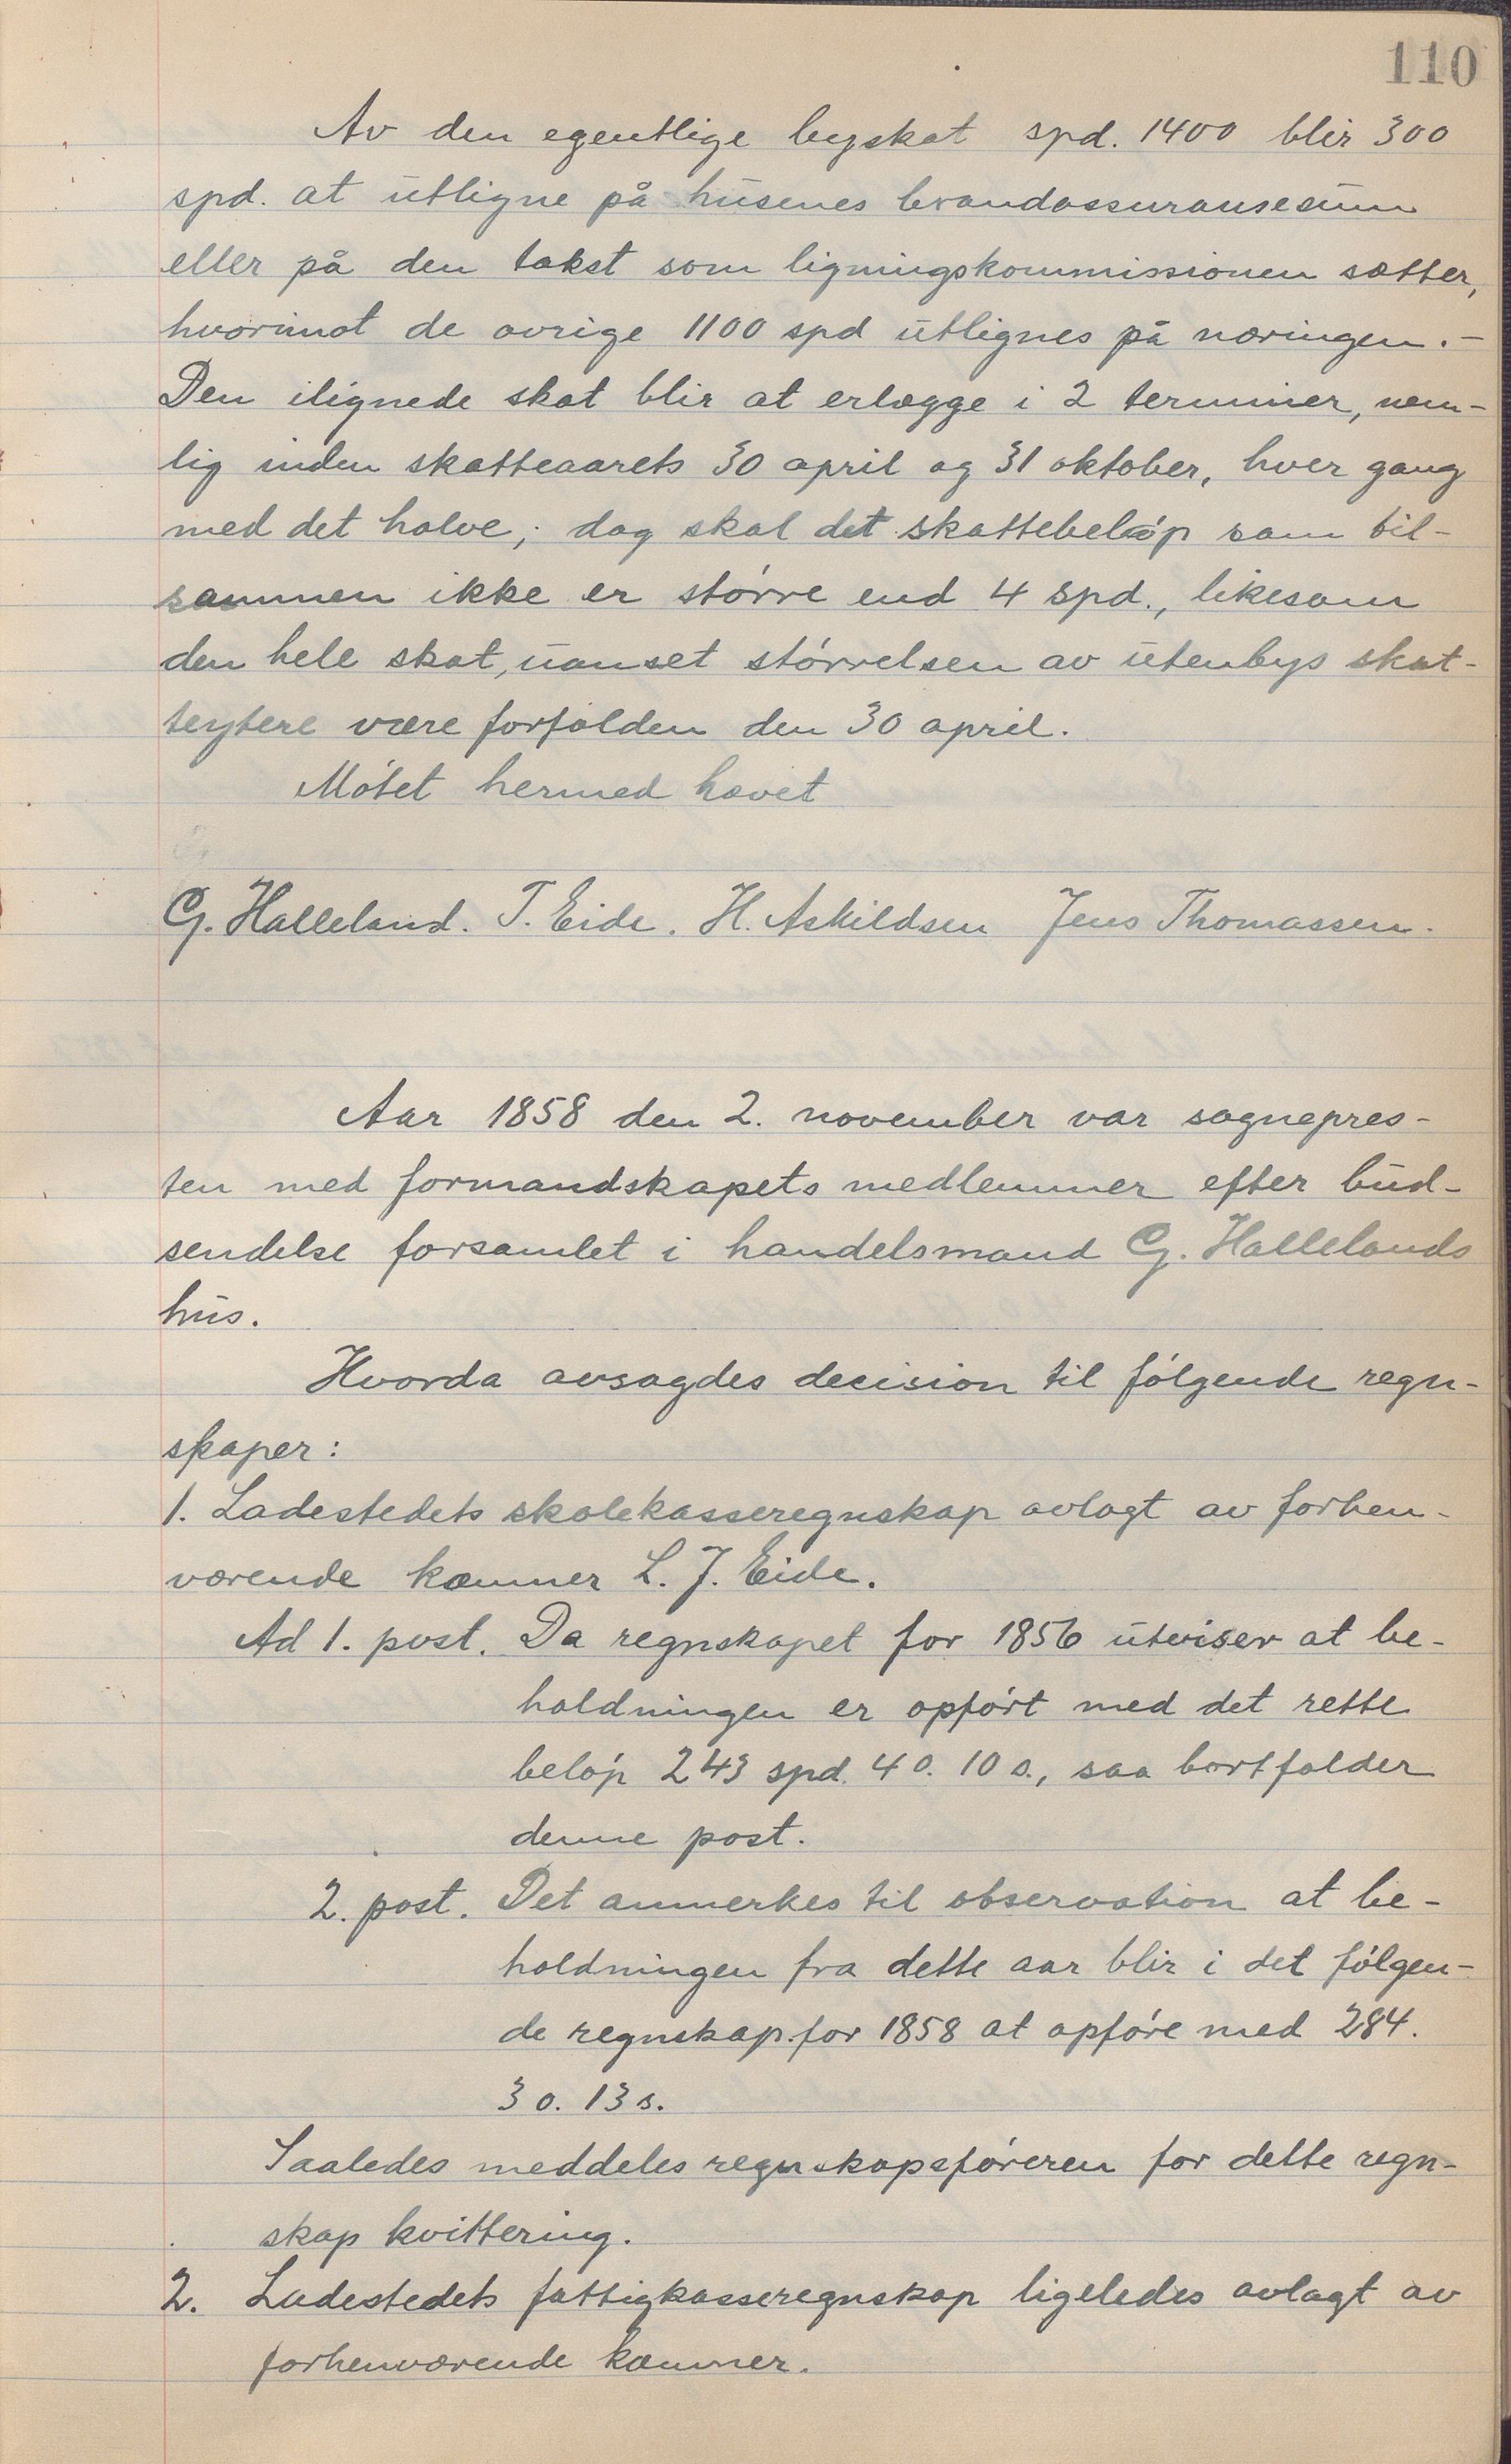 110
Av den egentlige byskat spd. 1400 blir 300
spd. at utligne på husenes brandassuransesum
eller på den takst som ligningskommissionen sætter,
hvorimot de øvrige 1100 spd utlignes på næringen. -
Den ilignede skat blir at erlægge i 2 terminer, nem-
lig inden skatteaarets 30 april og 31 oktober, hver gang
med det halve; dog skal det skattebeløp som til-
sammen ikke er større end 4 spd., likesom
den hele skat, uanset størrelsen av utenbys skat-
teytere være forfalden den 30 april.
Møtet hermed hævet
G. Halleland. T. Eide. H. Askildsen Jens Thomassen.
Aar 1858 den 2. november var sognepres-
ten med formandskapets medlemmer efter bud-
sendelse forsamlet i handelsmand G. Hallelands
hus.
Hvorda avsagdes decision til følgende regn-
skaper:
1. Ladestedets skolekasseregnskap avlagt av forhen-
værende kæmner L. J. Eide.
Ad 1. post. Da regnskapet for 1856 utviser at be-
holdningen er opført med det rette
beløp 243 spd. 4 o. 10 s., saa bortfalder
denne post.
2. post. Det anmerkes til observation at be-
holdningen fra dette aar blir i det følgen-
de regnskap for 1858 at opføre med 284.
3 o. 13 s.
Saaledes meddeles regnskapsføreren for dette regn-
skap kvittering.
2. Ladestedets fattigkasseregnskap ligeledes avlagt av
forhenværende kæmner.